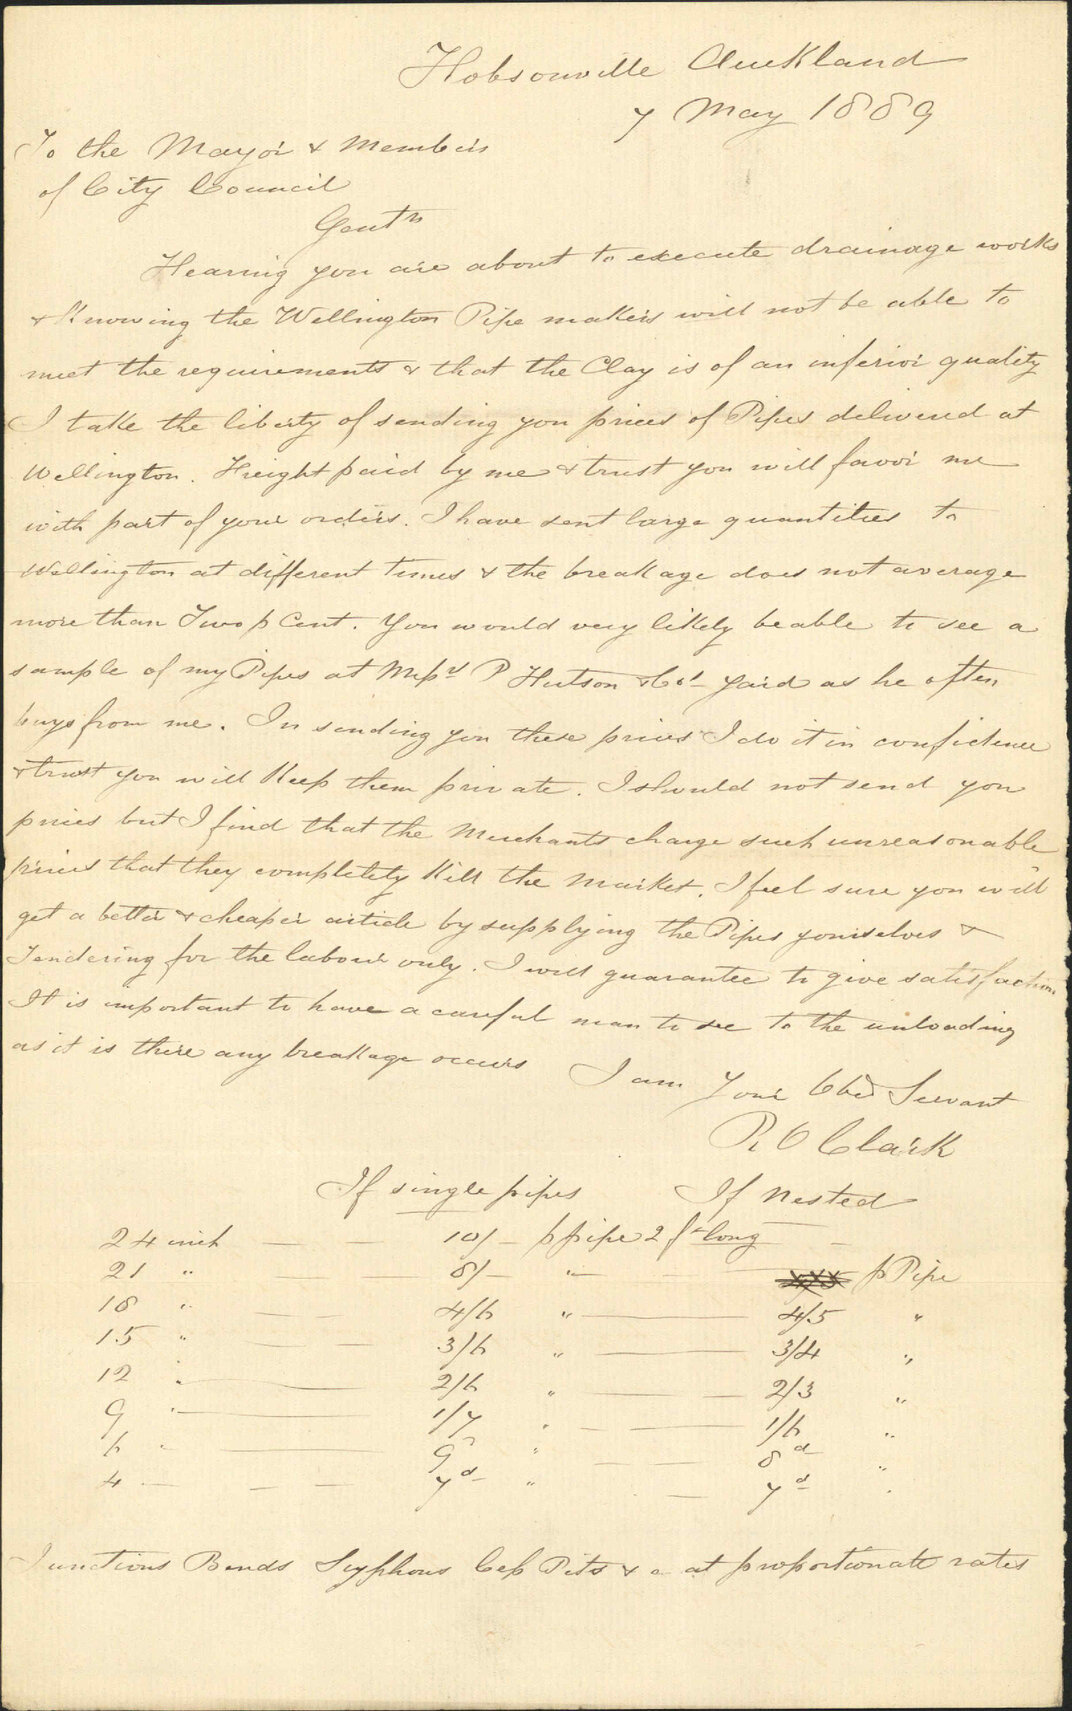 Hobsonville Auckland
7 May 1889
To the Mayor & Members
of City Council
Gentn
Hearing you are about to execute drainage works
& Knowing the Wellington Pipe makers will not be able to
meet the requirements & that the Clay is of an inferior quality
I take the liberty of sending you prices of Pipes delivered at
Wellington. Freight paid by me & trust you will favor me
with part of your orders. I have sent large quantities to
Wellington at different times & the breakage does not average
more than Two p Cent. You would very likely be able to see a
sample of my Pipes at Messrs P Hutson & Cos yard as he often
buys from me. In sending you these prices I do it in confidence
& trust you will Keep them private. I should not send you
prices but I find that the Merchants charge such unreasonable
prices that they completely Kill the market. I feel sure you will
get a better & cheaper article by supplying the Pipes yourselves &
Tendering for the labour only. I will guarantee to give satisfaction
It is important to have a careful man to see to the unloading
as it is there any breakage occurs
I am Your Obed Servant
R. O Clark
If single pipes If Nested
24 inch — — 10/- p pipe 2 ft long — —
21 " — — 8/- " — p Pipe
18 " — — 4/6 " — 4/5 "
15 " — — 3/6 " — 3/4 "
12 " — 2/6 " — 2/3 "
9 " — 1/7 " — 1/6 "
6 " — 9d " — 8d "
4 — — — 7d " — 7d "
Junctions Bends Syphons Cesspits &c at proportionate rates